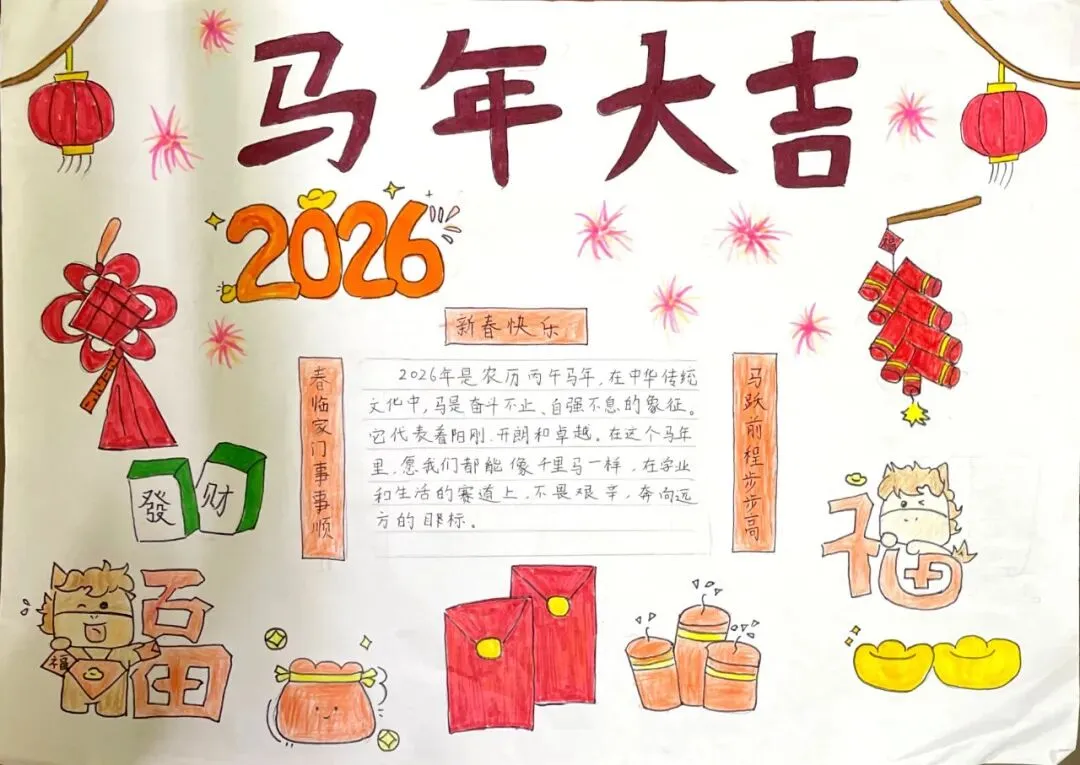 马年大吉
2026
新春快乐
春临家门事事顺
2026年是农历丙午马年,在中华传统
文化中,马是奋斗不止、自强不息的象征。
它代表着阳刚、开朗和卓越。在这个马年
里,愿我们都能像千里马一样,在学业
和生活的赛道上,不畏艰辛,奔向远
方的目标。
马跃前程步步高
福
發
财
福
福
福